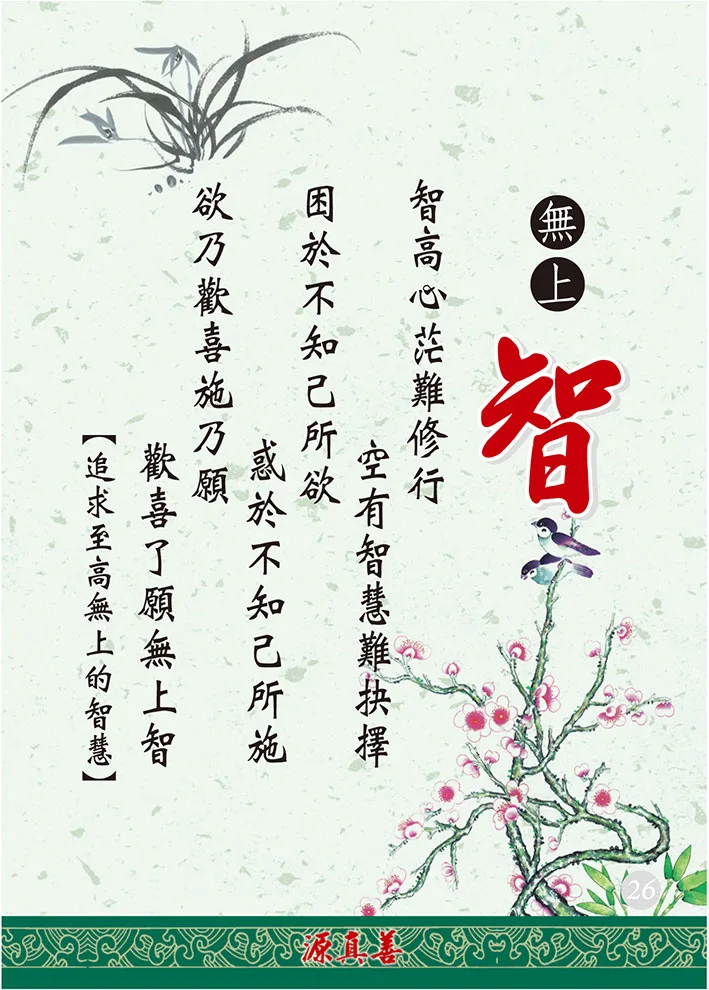 無上
智
智高心茫難修行
空有智慧難抉擇
困於不知己所欲
惑於不知己所施
欲乃歡喜施乃願
歡喜了願無上智
【追求至高無上的智慧】
26
源真善